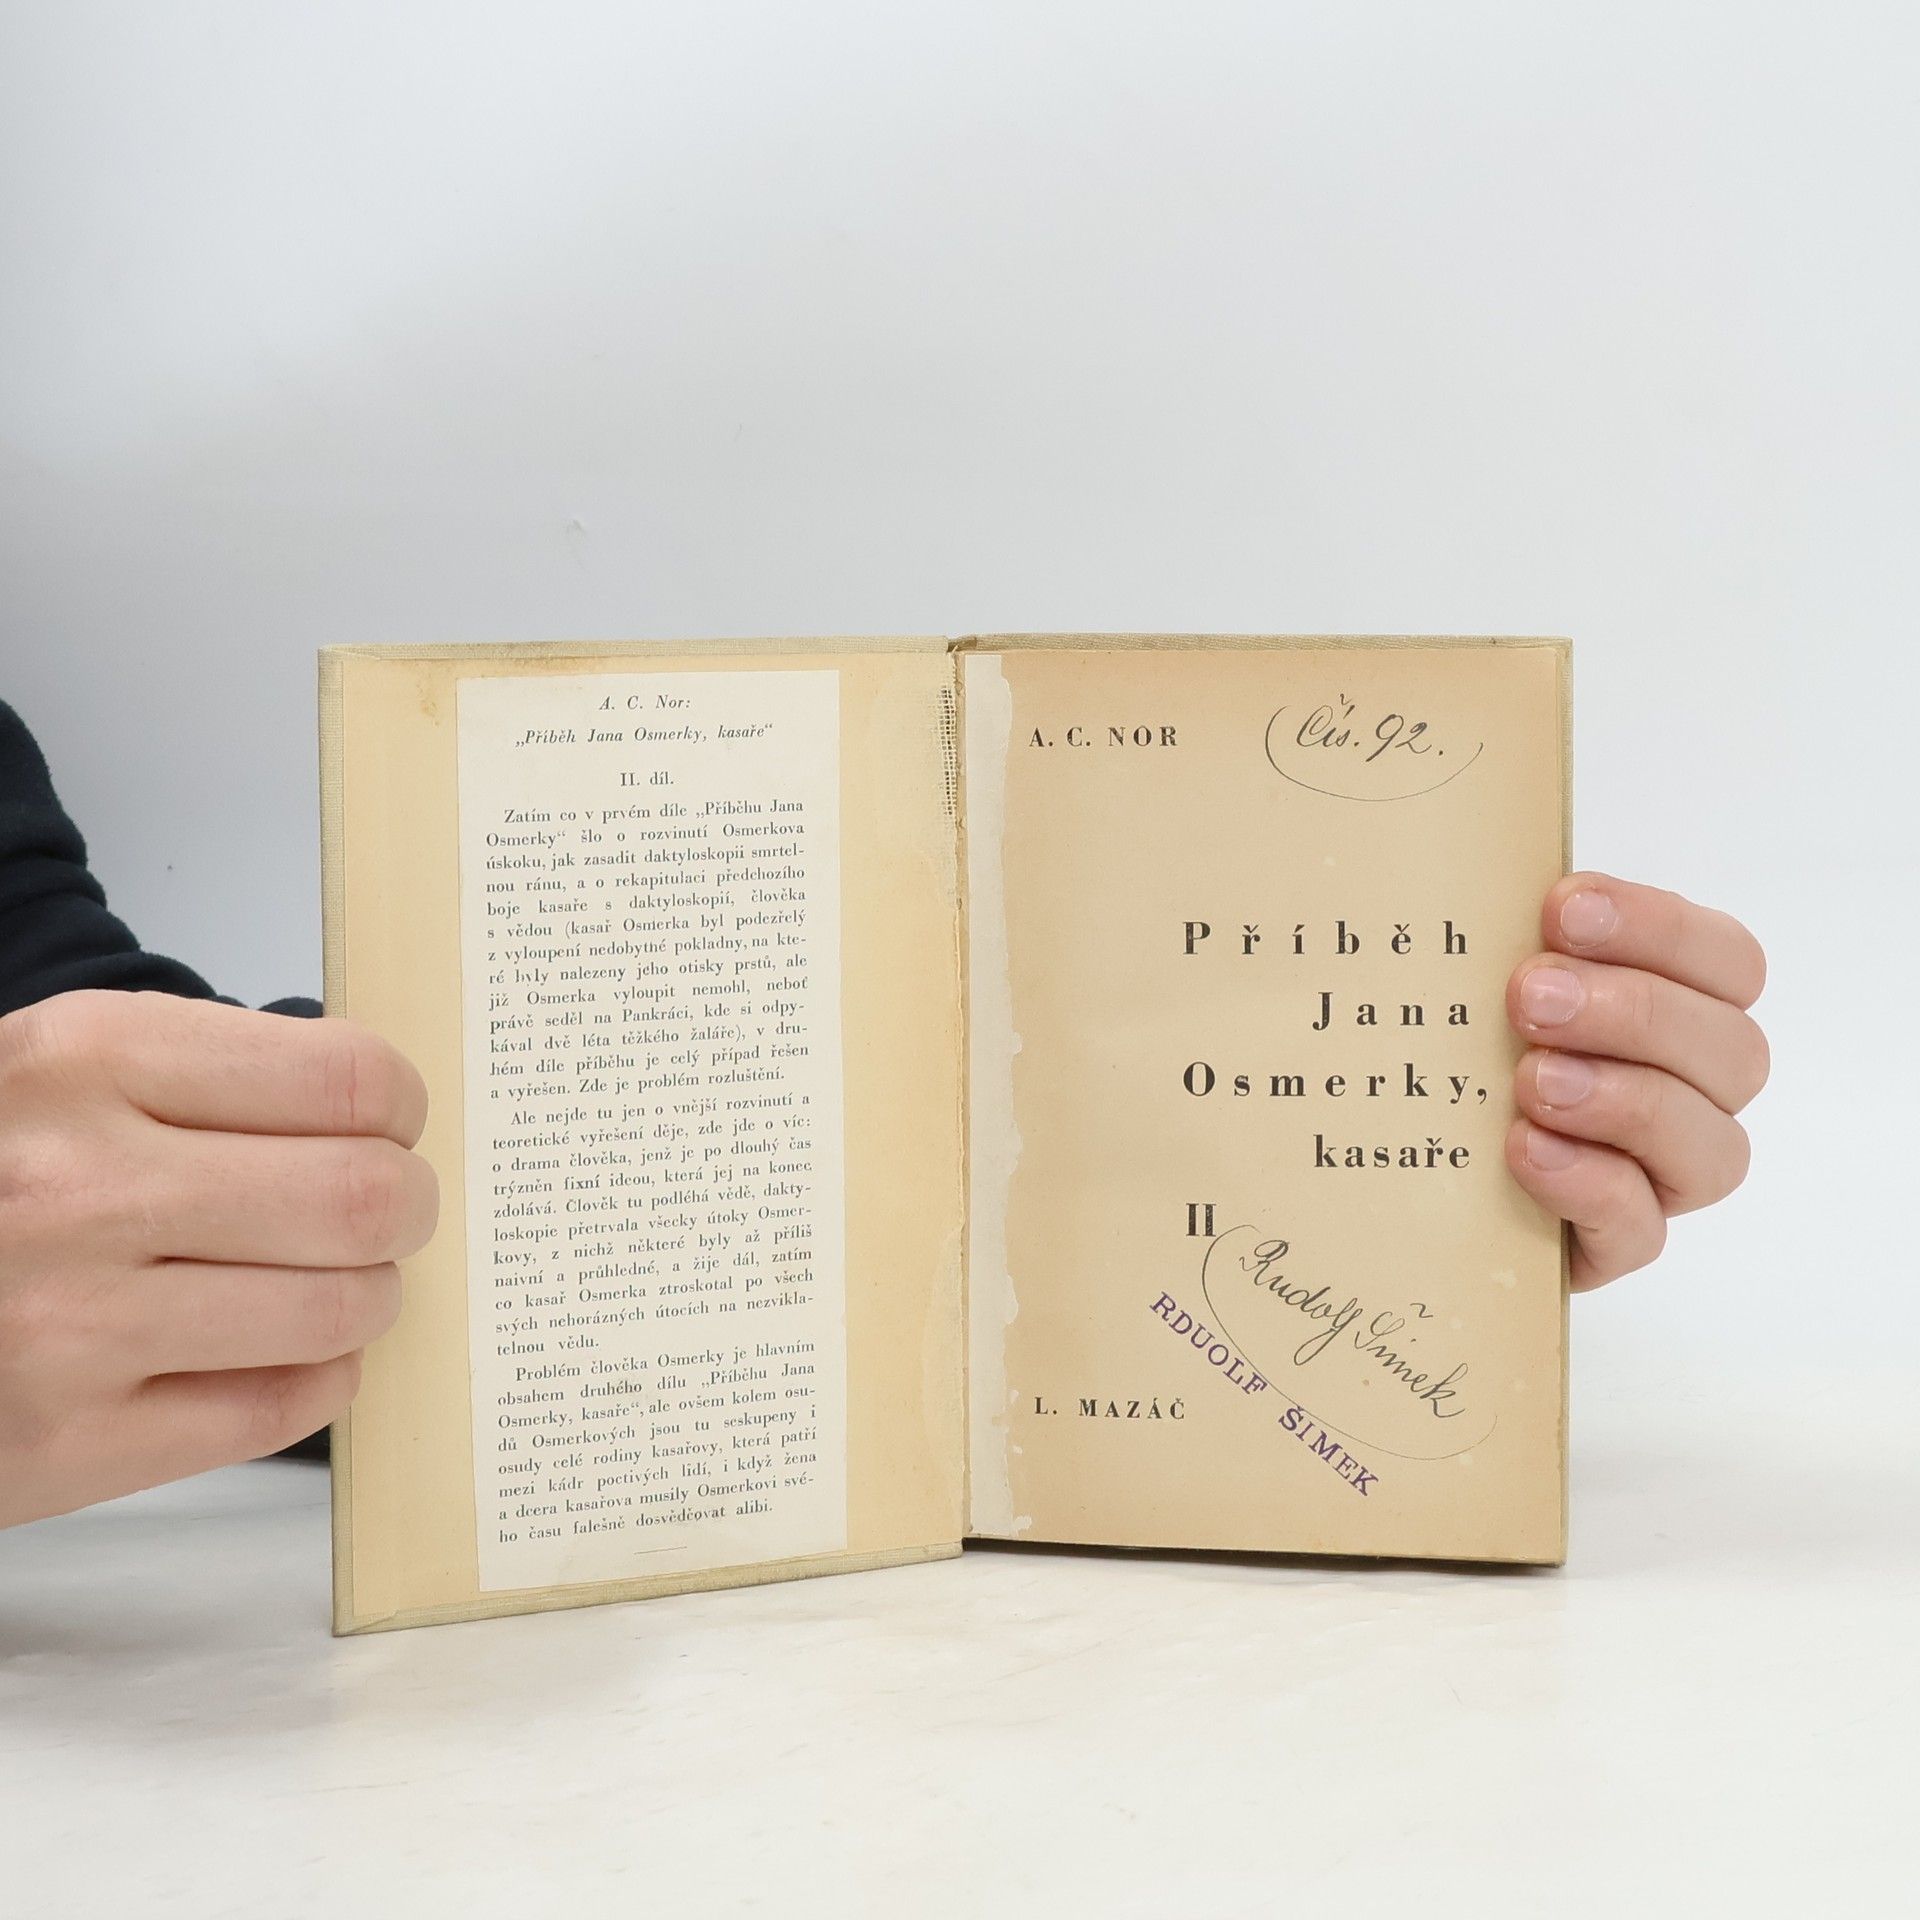 A. C. Nor:
„Příběh Jana Osmerky, kasaře“
II. díl.
Zatím co v prvém díle „Příběhu Jana
Osmerky“ šlo o rozvinutí Osmerkova
úskoku, jak zasadit daktyloskopii smrtel-
nou ránu, a o rekapitulaci předchozího
boje kasaře s daktyloskopií, člověka
s vědou (kasař Osmerka byl podezřelý
z vyloupení nedobytné pokladny, na kte-
ré byly nalezeny jeho otisky prstů, ale
již Osmerka vyloupit nemohl, neboť
právě seděl na Pankráci, kde si odpy-
kával dvě léta těžkého žaláře), v dru-
hém díle příběhu je celý případ řešen
a vyřešen. Zde je problém rozluštění.
Ale nejde tu jen o vnější rozvinutí a
teoretické vyřešení děje, zde jde o víc:
o drama člověka, jenž je po dlouhý čas
trýzněn fixní ideou, která jej na konec
zdolává. Člověk tu podléhá vědě, dakty-
loskopie přetrvala všecky útoky Osmer-
kovy, z nichž některé byly až příliš
naivní a průhledné, a žije dál, zatím
co kasař Osmerka ztroskotal po všech
svých nehorázných útocích na nezvikla-
telnou vědu.
Problém člověka Osmerky je hlavním
obsahem druhého dílu „Příběhu Jana
Osmerky, kasaře“, ale ovšem kolem osu-
dů Osmerkových jsou tu seskupeny i
osudy celé rodiny kasařovy, která patří
mezi kádr poctivých lidí, i když žena
a dcera kasařova musily Osmerkovi své-
ho času falešně dosvědčovat alibi.
A. C. NOR
Čís. 92.
Příběh
Jana
Osmerky,
kasaře
II
Rudolf Šimek
RDUOLF ŠIMEK
L. MAZÁČ